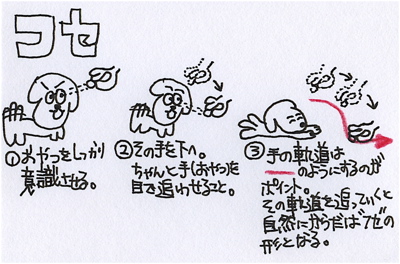 フセ
①おやつをしっかり
意識させる。
②その手を下へ。
ちゃんと手(おやつ)を
目で追わせること。
③手の軌道は
のようにするのが
ポイント。
その軌道を追っていくと
自然にからだは"フセ"の
形となる。